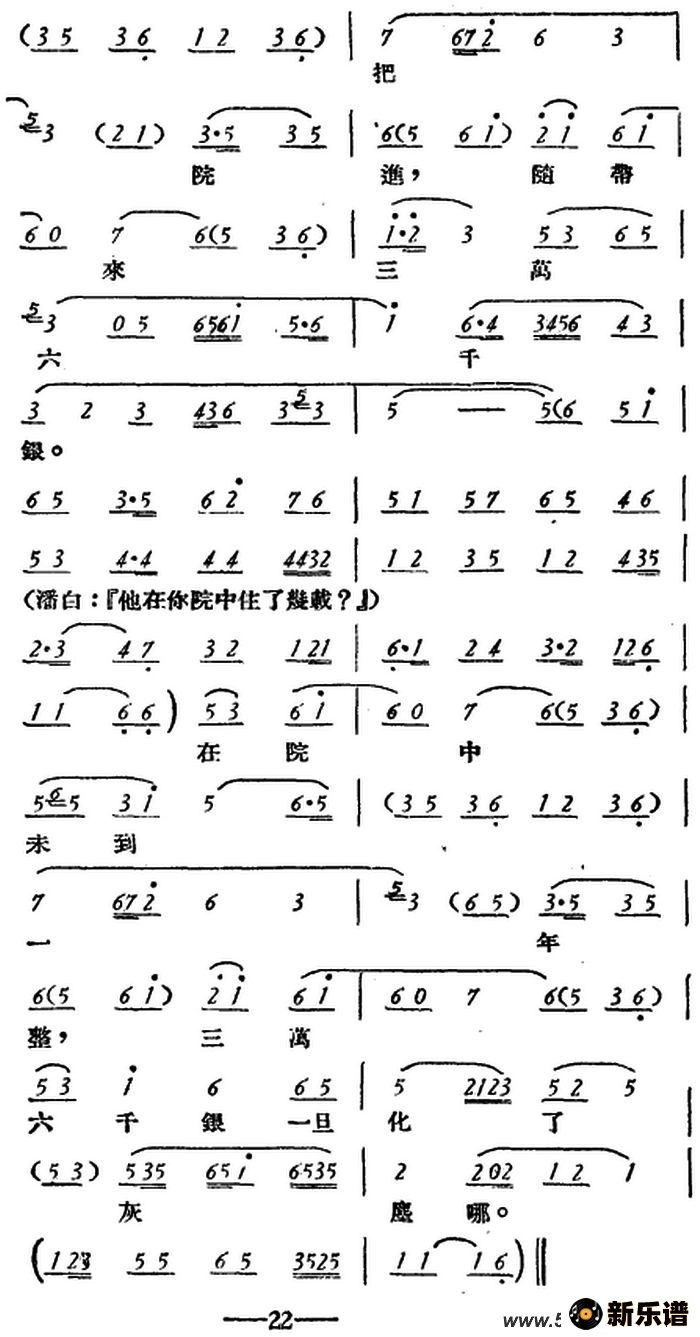 (35 36 12 36) | 7 672 6 3
把
53 (21) 3·5 35 | 6(5 61) 21 61
院 進， 隨 帶
60 7 6(5 36) | 1·2 3 53 65
來 三 萬
53 05 6561 5·6 | 1 6·4 3456 43
六 千
3 2 3 436 353 | 5 — 5(6 51
銀。
65 3·5 62 76 | 51 57 65 46
53 4·4 44 4432 | 12 35 12 435
(潘白：『他在你院中住了幾載？』)
2·3 47 32 121 | 6·1 24 3·2 126
11 66) 53 61 | 60 7 6(5 36)
在 院 中
565 31 5 6·5 | (35 36 12 36)
未 到
7 672 6 3 | 53 (65) 3·5 35
一 年
6(5 61) 21 61 | 60 7 6(5 36)
整， 三 萬
53 1 6 65 | 5 2123 52 5
六 千 銀 一旦 化 了
(53) 535 651 6535 | 2 202 12 1
灰 塵 哪。
(123 55 65 3525 | 11 16)
—22—
www.5
新乐谱